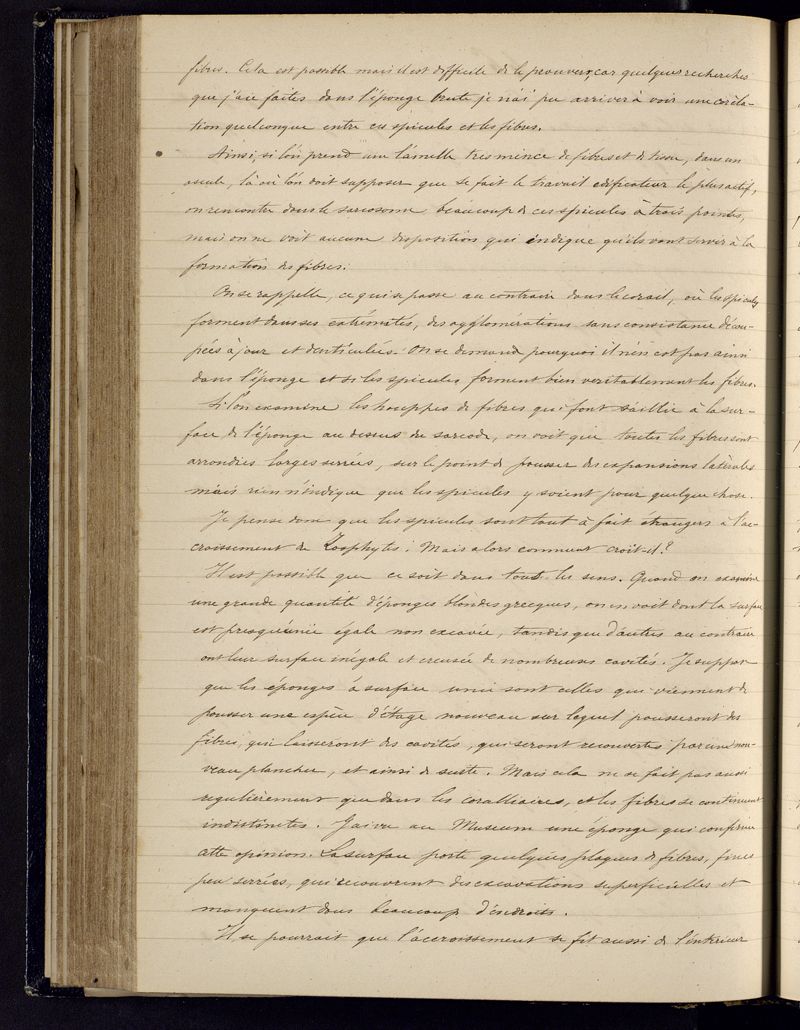 fibres. Cela est possible mais il est difficile de le prouver, car quelques recherches
que j'aie faites dans l'éponge brute je n'ai pu arriver à voir une corela-
tion quelconque entre ces spicules et les fibres.
Ainsi, si l'on prend une lamelle tres mince de fibres et de tissu, dans un
oscule, là où l'on doit supposer que se fait le travail edificateur le plus actif,
on rencontre dans le sarcosome beaucoup de ces spicules à trois pointes,
mais on ne voit aucune disposition qui indique qu'ils vont servir à la
formation des fibres.
On se rappelle, ce qui se passe au contraire dans le corail, où les spicules
forment dans ses extrémités, des agglomérations sans consistance décou-
pées à jour et denticulées. On se demande pourquoi il n'en est pas ainsi
dans l'éponge et si les spicules forment bien veritablement les fibres.
Si l'on examine les houppes de fibres qui font saillie à la sur-
face de l'éponge au dessus du sarcode, on voit que toutes les fibres sont
arrondies larges serrées, sur le point de pousser des expansions latérales
mais rien n'indique que les spicules y soient pour quelque chose.
Je pense donc que les spicules sont tout à fait étrangers à l'ac-
croissement de Zoophytes. Mais alors comment croît-il?
Il est possible que ce soit dans tous les sens. Quand on examine
une grande quantité d'éponges blondes grecques, on en voit dont la surface
est presque unie égale non excavée, tandis que d'autres au contraire
ont leur surface inégale et creusée de nombreuses cavités. Je suppose
que les éponges à surface unie sont celles qui viennent de
pousser une espèce d'étage nouveau sur lequel pousseront des
fibres, qui laisseront des cavités, qui seront recouvertes par un nou-
veau plancher, et ainsi de suite. Mais cela ne se fait pas aussi
regulierement que dans les coralliaires, et les fibres se continuent
indistinctes. J'ai vu au Museum une éponge qui confirme
cette opinion. La surface porte quelques plaques de fibres, fines
peu serrées, qui recouvrent des excavations superficielles et
manquent dans beaucoup d'endroits.
Il se pourrait que l'accroissement se fit aussi de l'intérieur